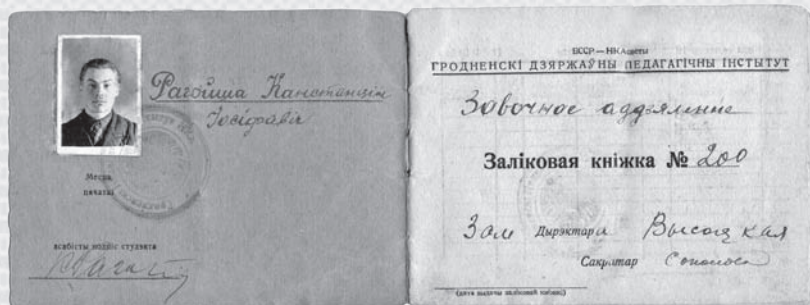 Рагойша Канстанцін
Іосіфавіч
Месца
пячаткі
асабісты подпіс студэнта
БССР — НКАсветы
ГРОДНЕНСКІ ДЗЯРЖАЎНЫ ПЕДАГАГІЧНЫ ІНСТЫТУТ
Завочное аддзяление
Заліковая кніжка № 200
Зам Дырэктара Высоцкая
Сакратар
(дата выдачы заліковай кніжкі)